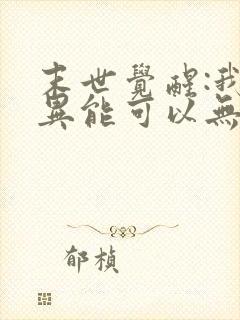 末世覺醒:我
異能可以無
郁楨